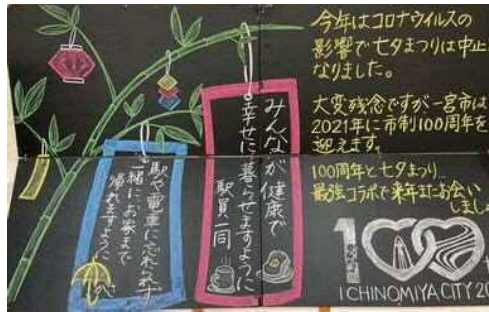 今年はコロナウイルスの
影響で七夕まつりは中止
なりました。
大変残念ですが一宮市は
2021年に市制100周年を
迎えます。
100周年と七夕まつり
最強コラボで来年またお会い
しましょ
みんなが健康で
幸せに暮らせますように
駅員一同
駅や電車に忘れられず
一緒にお家まで
帰れますように
かさ
100
ICHINOMIYA CITY 20